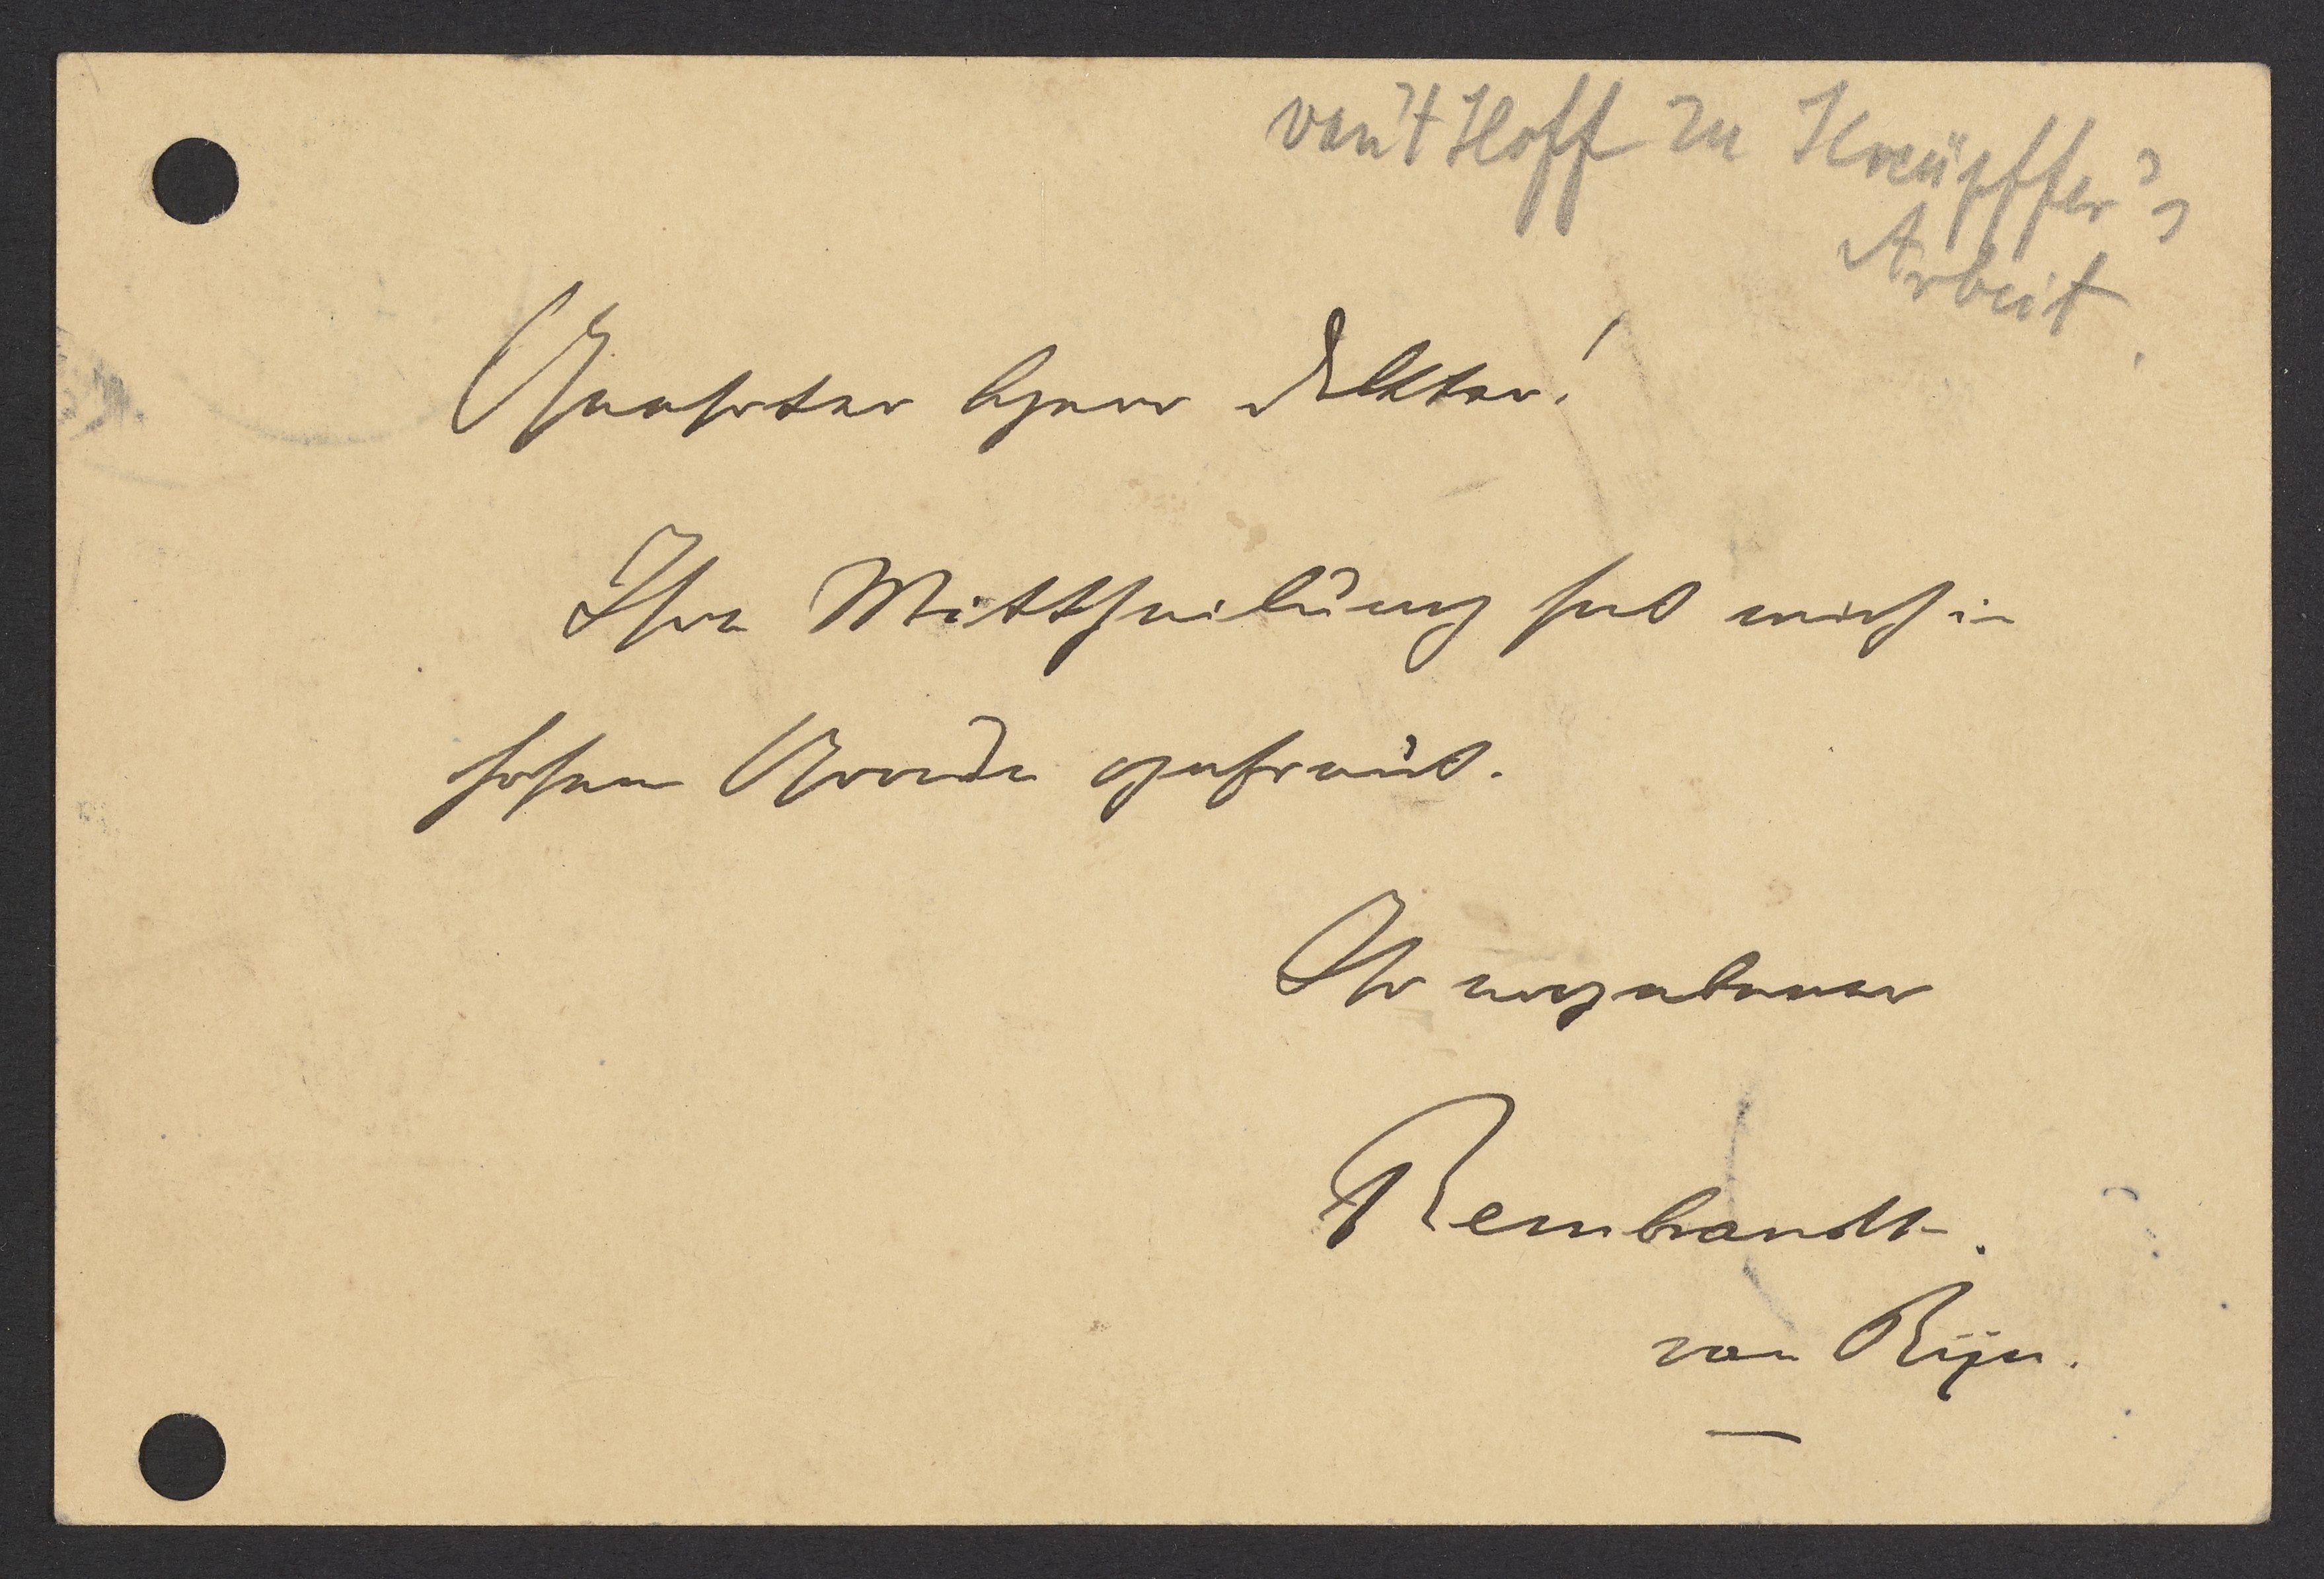 van't Hoff zu Knüpffer's
Arbeit.
Geehrter Herr Doktor!
Ihre Mittheilung hat mich in
hohem Grade gefreut.
Ihr ergebener
Rembrandt.
van Rijn.